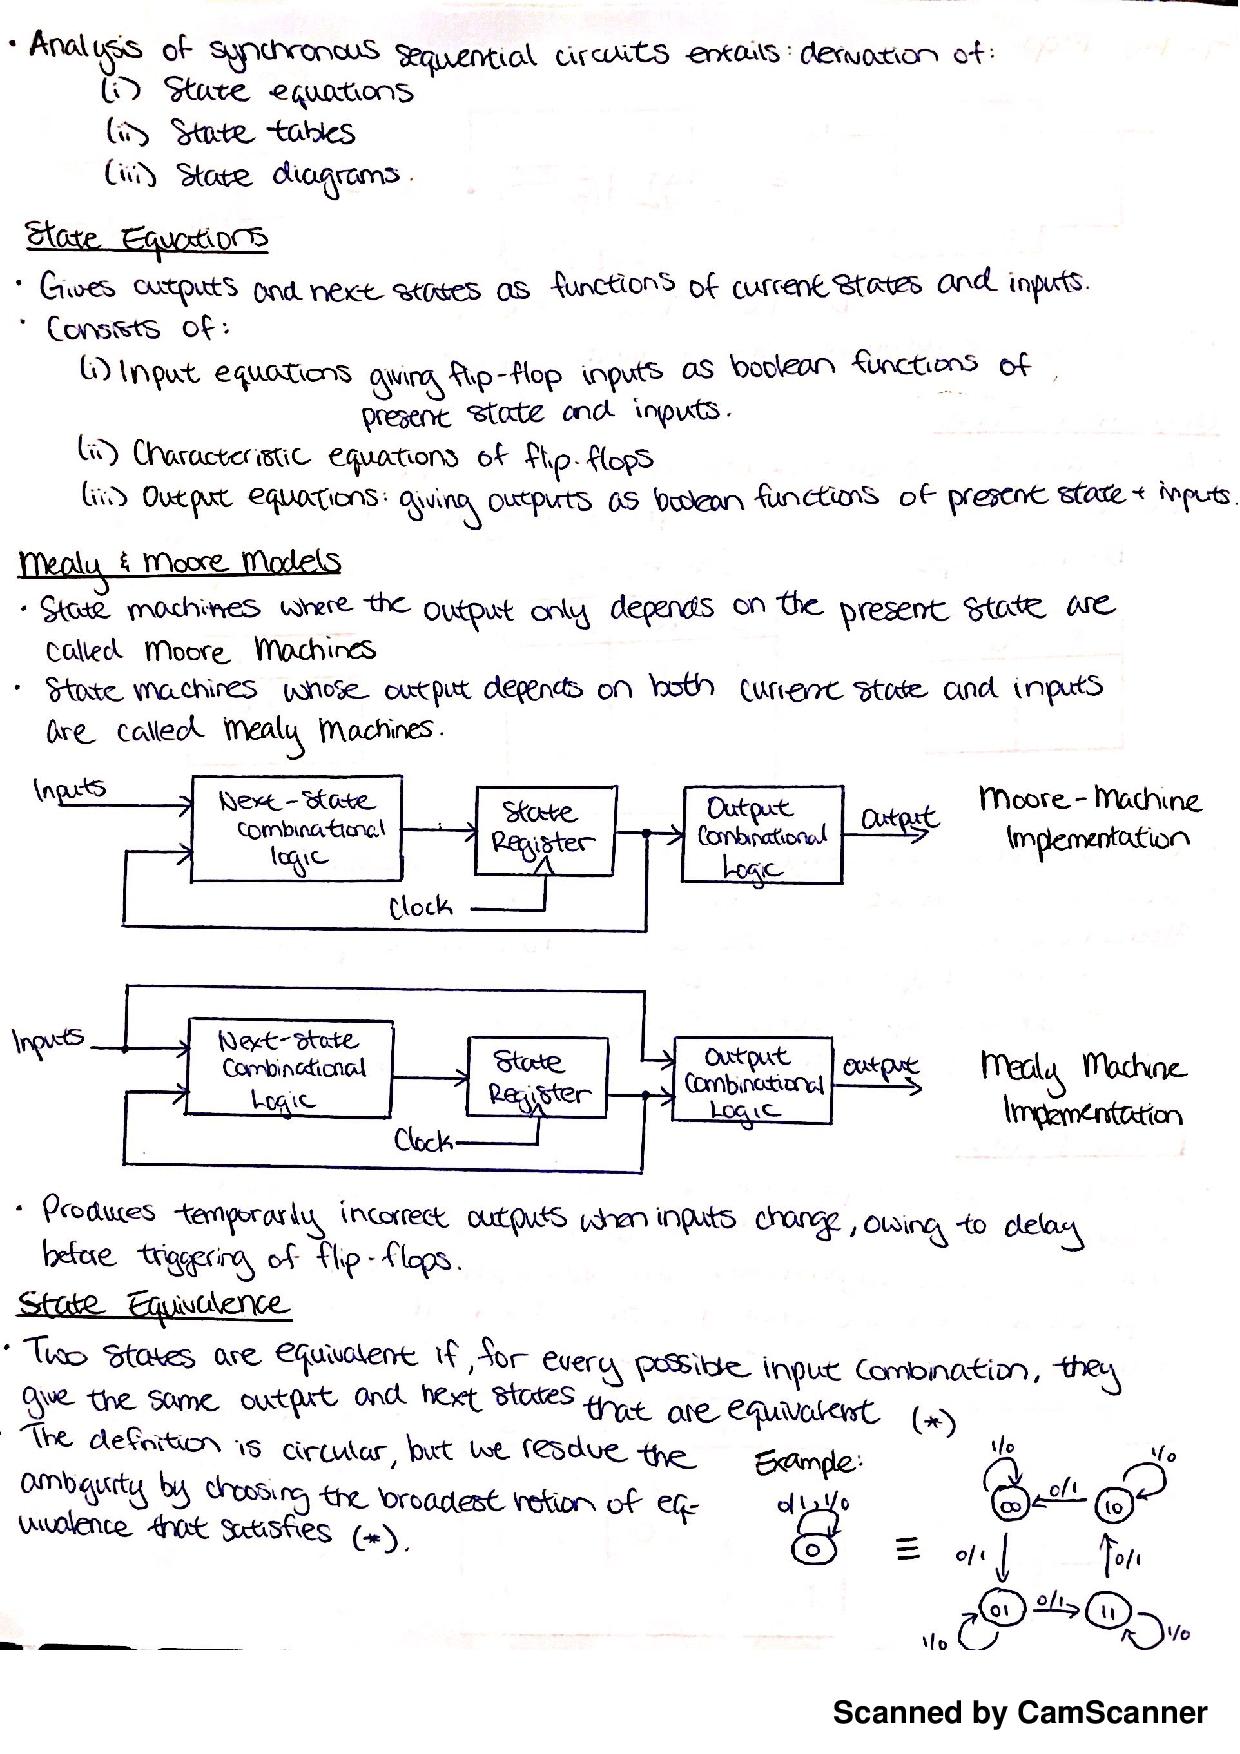 · Analysis of synchronous sequential circuits entails: derivation of:
(i) State equations
(ii) State tables
(iii) State diagrams.
State Equations
· Gives outputs and next states as functions of current states and inputs.
· Consists of:
(i) Input equations giving flip-flop inputs as boolean functions of
present state and inputs.
(ii) Characteristic equations of flip-flops
(iii) Output equations: giving outputs as boolean functions of present state + inputs.
Mealy & Moore Models
· State machines where the output only depends on the present state are
called Moore Machines
· State machines whose output depends on both current state and inputs
are called Mealy Machines.
Inputs
Next-State
Combinational
logic
State
Register
Clock
Output
Combinational
Logic
Output
Moore-Machine
Implementation
Inputs
Next-State
Combinational
Logic
State
Register
Clock
Output
Combinational
Logic
Output
Mealy Machine
Implementation
· Produces temporarily incorrect outputs when inputs change, owing to delay
before triggering of flip-flops.
State Equivalence
· Two states are equivalent if, for every possible input combination, they
give the same output and next states that are equivalent (*)
· The definition is circular, but we resolve the
ambiguity by choosing the broadest notion of eq-
uivalence that satisfies (*).
Example:
0/1, 1/0
0
≡
1/0
00
0/1
10
1/0
0/1
0/1
01
0/1
11
1/0
1/0
Scanned by CamScanner